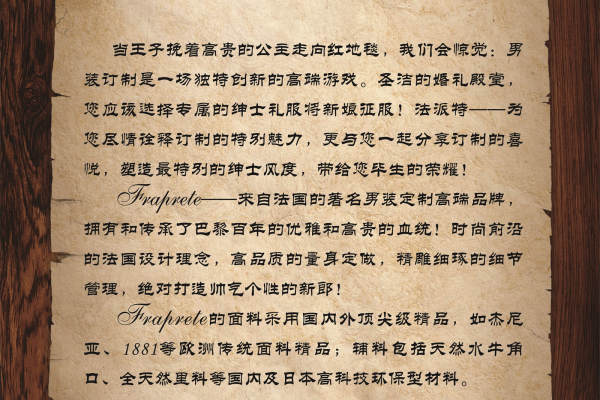 当王子挽着高贵的公主走向红地毯，我们会惊觉：男
装订制是一场独特创新的高端游戏。圣洁的婚礼殿堂，
您应该选择专属的绅士礼服将新娘征服！法派特——为
您尽情诠释订制的特别魅力，更与您一起分享订制的喜
悦，塑造最特别的绅士风度，带给您毕生的荣耀！
Fraprete——来自法国的著名男装定制高端品牌，
拥有和传承了巴黎百年的优雅和高贵的血统！时尚前沿
的法国设计理念，高品质的量身定做，精雕细琢的细节
管理，绝对打造帅气个性的新郎！
Fraprete的面料采用国内外顶尖级精品，如杰尼
亚、1881等欧洲传统面料精品；辅料包括天然水牛角
口、全天然里料等国内及日本高科技环保型材料。